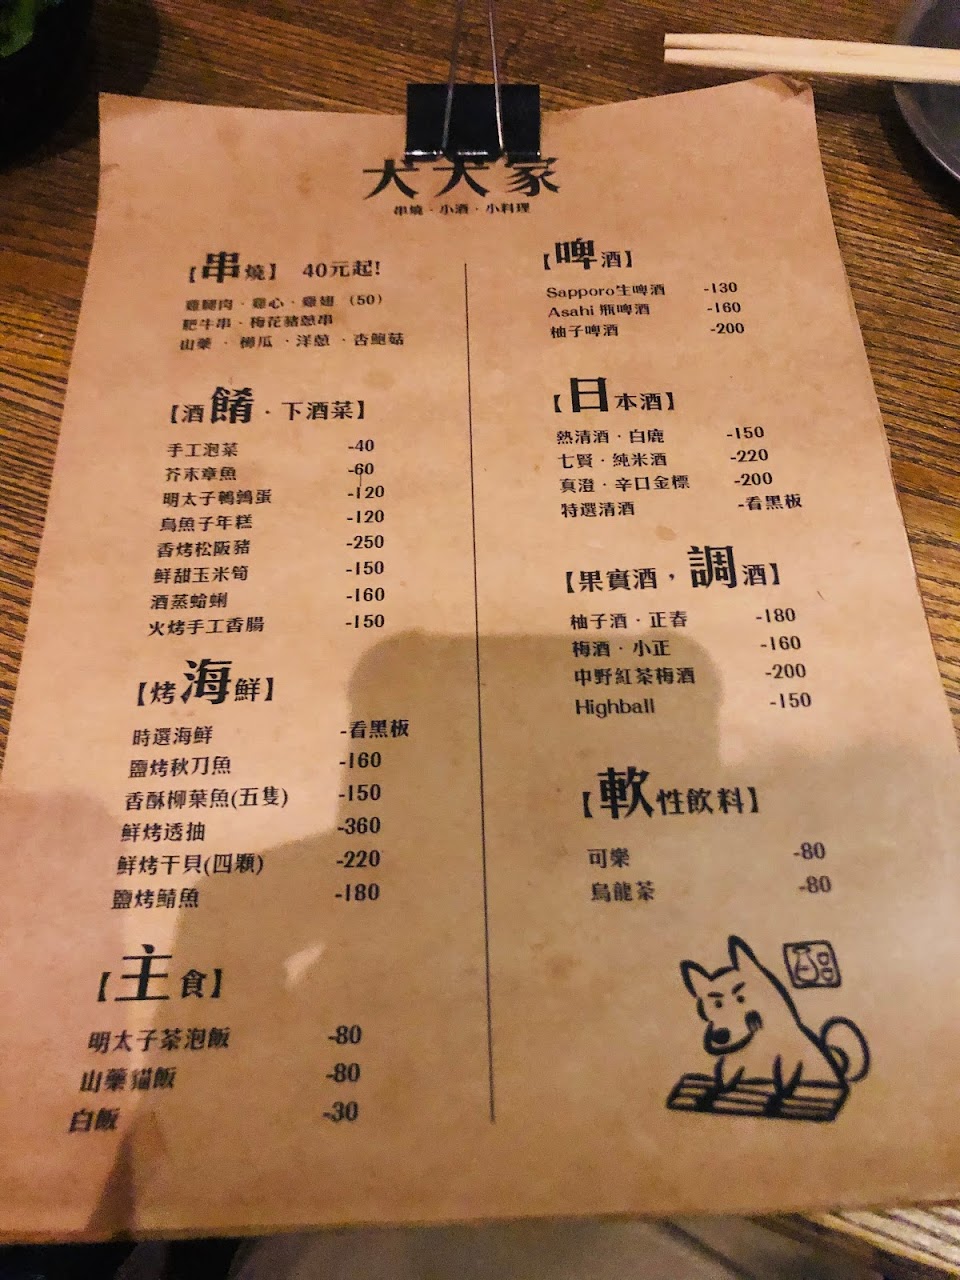 犬犬家
串燒．小酒．小料理
【串燒】 40元起!
雞腿肉．雞心．雞翅 (50)
肥牛串．梅花豬蔥串
山藥 ．櫛瓜 ．洋蔥 ．杏鮑菇
【酒餚．下酒菜】
手工泡菜 -40
芥末章魚 -60
明太子鵪鶉蛋 -120
烏魚子年糕 -120
香烤松阪豬 -250
鮮甜玉米筍 -150
酒蒸蛤蜊 -160
火烤手工香腸 -150
【烤海鮮】
時選海鮮 -看黑板
鹽烤秋刀魚 -160
香酥柳葉魚(五隻) -150
鮮烤透抽 -360
鮮烤干貝(四顆) -220
鹽烤鯖魚 -180
【主食】
明太子茶泡飯 -80
山藥貓飯 -80
白飯 -30
【啤酒】
Sapporo生啤酒 -130
Asahi 瓶啤酒 -160
柚子啤酒 -200
【日本酒】
熱清酒．白鹿 -150
七賢．純米酒 -220
真澄．辛口金標 -200
特選清酒 -看黑板
【果實酒，調酒】
柚子酒．正春 -180
梅酒．小正 -160
中野紅茶梅酒 -200
Highball -150
【軟性飲料】
可樂 -80
烏龍茶 -80